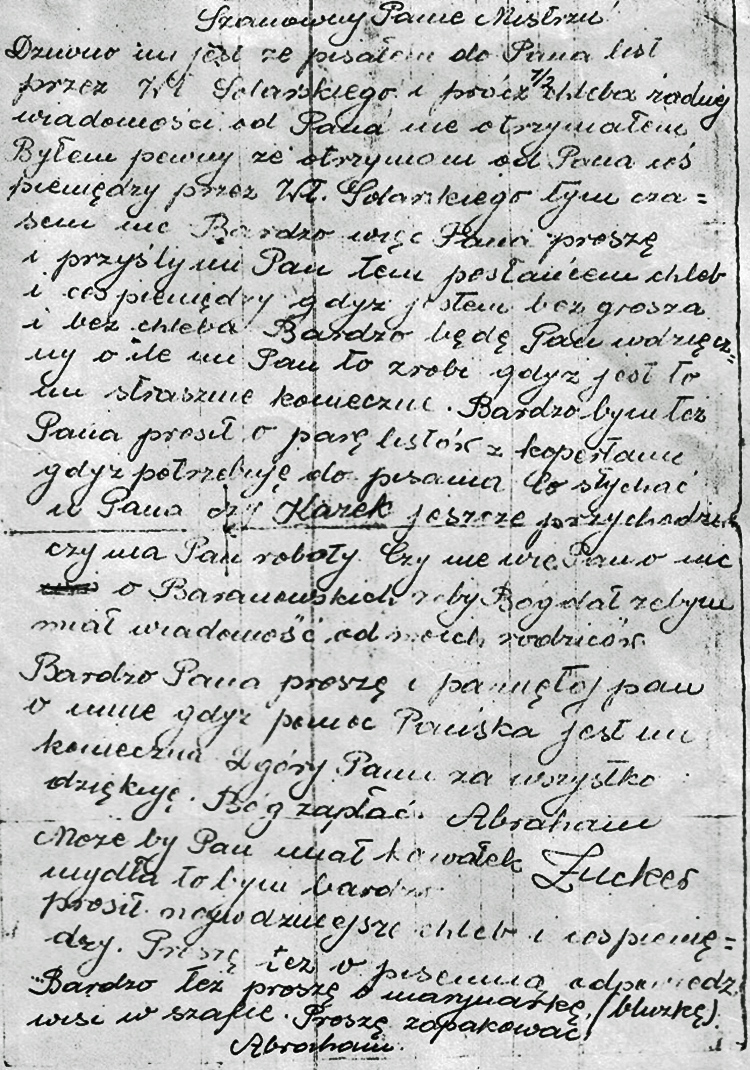 Szanowny Panie Mistrzu
Dziwno mi jest że pisałem do Pana list
przez Wł Solarskiego i prócz 1/2 chleba żadnej
wiadomości od Pana nie otrzymałem
Byłem pewny że otrzymam od Pana coś
pieniędzy przez Wł. Solarskiego tym cza=
sem nic Bardzo więc Pana proszę
i przyśly mi Pan tem posłańcem chleb
i coś pieniędzy gdyż jestem bez grosza
i bez chleba. Bardzo będę Panu wdzięcz=
ny o ile mi Pan to zrobi gdyż jest to
mi strasznie konieczne. Bardzo bym też
Pana prosił o parę listów z kopertami
gdyż potrzebuję do pisania Co słychać
u Pana czy Kazek jeszcze przychodzi
czy ma Pan roboty. Czy nie wie Pan o nic
o Baranowskich żeby Bóg dał żebym
miał wiadomość od moich rodziców
Bardzo Pana proszę i pamiętaj pan
o mnie gdyż pomoc Pańska jest mi
konieczna Z góry Panu za wszystko
dziękuję. Bóg zapłać. Abraham
Może by Pan miał kawałek Zucker
mydła to bym bardzo
prosił. najważniejsze chleb i coś pienię=
dzy. Proszę też o pisemną odpowiedź
Bardzo też proszę o marynarkę, (bluzkę).
wisi w szafie. Proszę zapakować
Abraham.